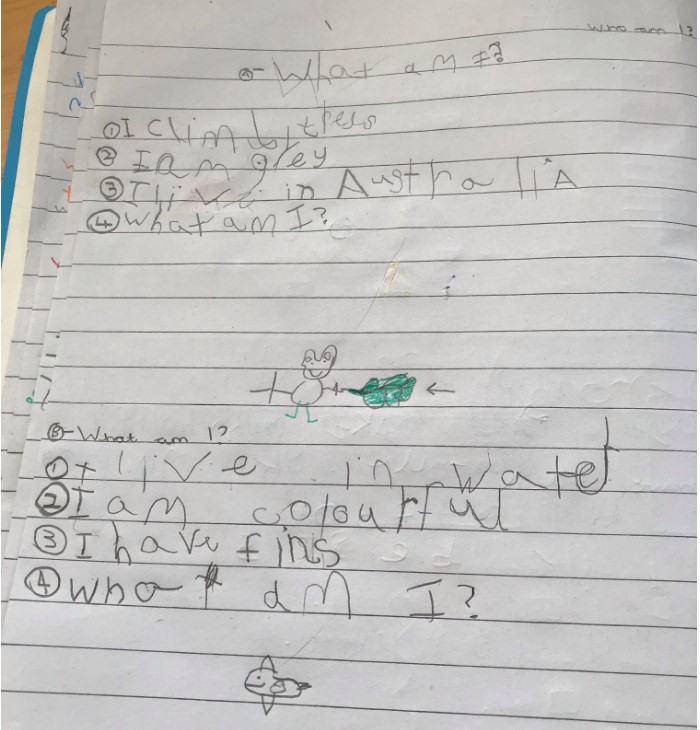 Who am I?
A- What am I?
① I climb trees
② I am grey
③ I live in Australia
④ What am I?
B- What am I?
① I live in water
② I am colourful
③ I have fins
④ What am I?